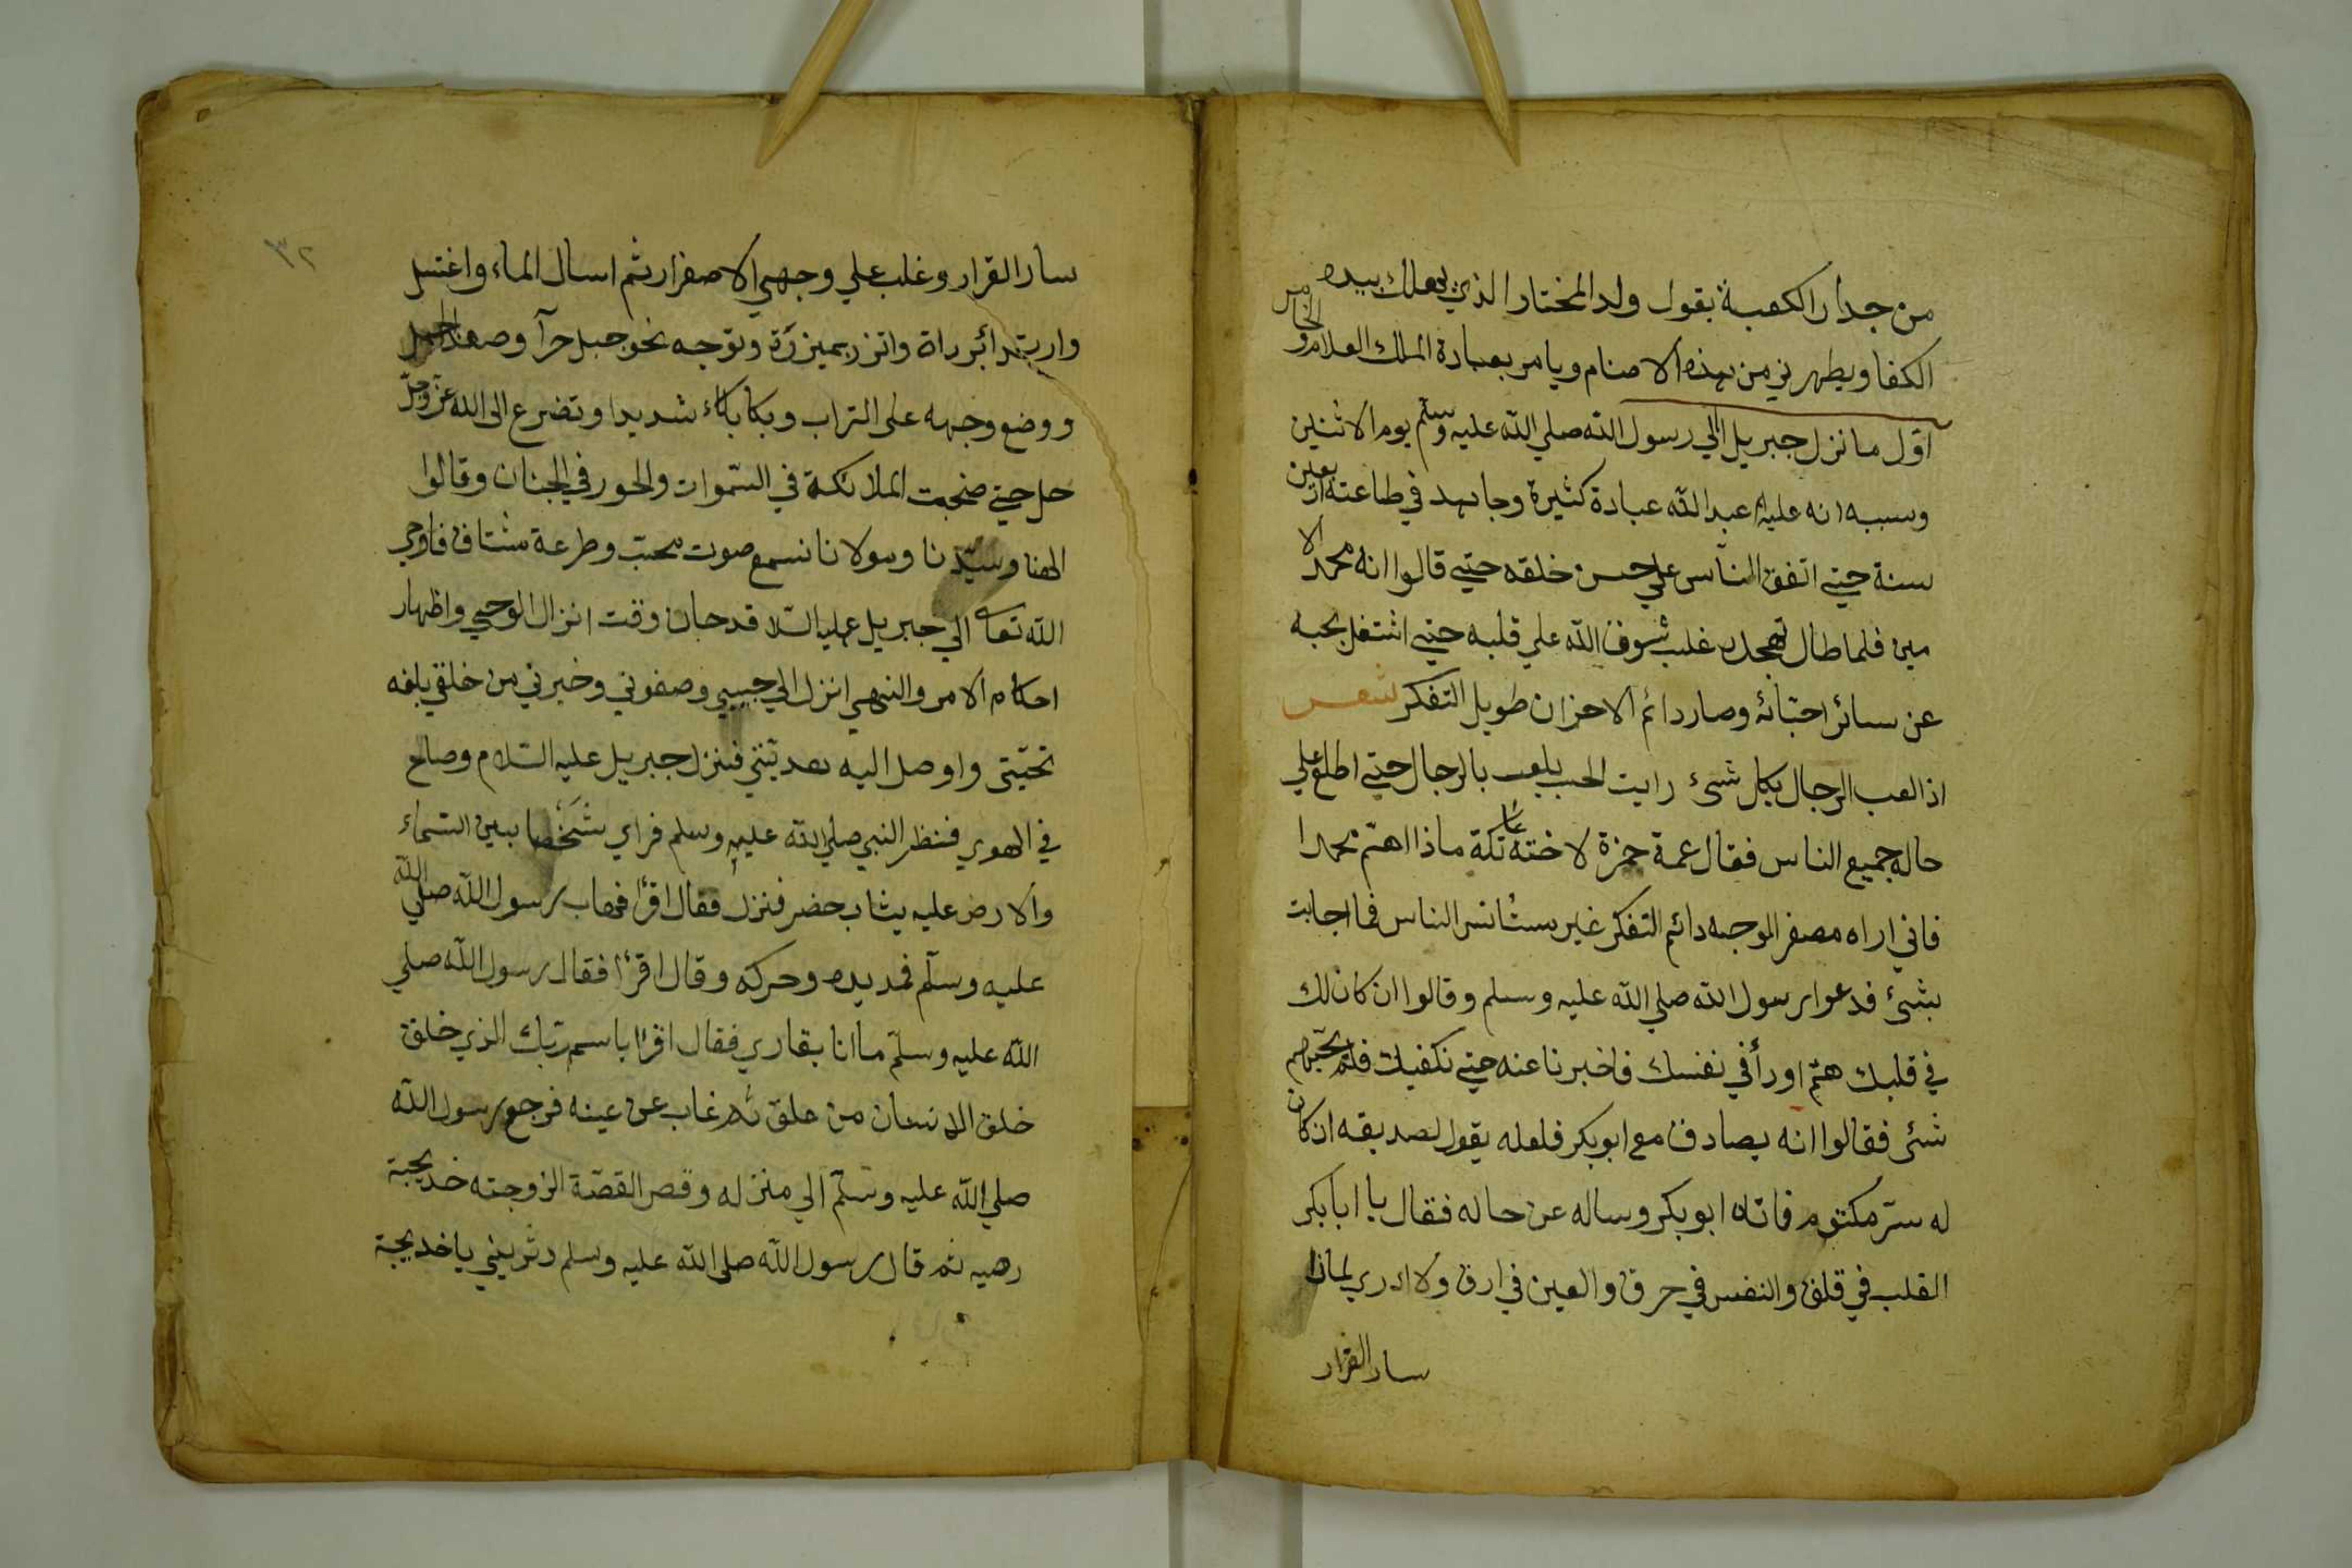 من جدار الكعبة يقول ولد المختار الذي يهلك بيده
الكفا ويطهرني من هذه الاصنام ويامر بعبادة الملك العلام و الخامس
اوّل ما نزل جبريل الي رسول الله صلي الله عليه وسلّم يوم الاثنين
وسببه انه عليه عبد الله عبادة كثيرة وجاهد في طاعته اربعين
سنة حتي اتفق الناس علي حسن خلقه حتي قالوا انه محمد الا
مين فلما طال تهجده غلب شوق الله علي قلبه حتي اشتغل بحبه
عن سائر احبّائه وصار دائم الاحزان طويل التفكر شعر
اذا لعب الرجال بكل شئ رايت الحب يلعب بالرجال حتي اطلع علي
حاله جميع الناس فقال عمه حمزة لاخته عاتكة ماذا اهتم محمدا
فاني اراه مصفر الوجه دائم التفكر غير مستأنس الناس فما اجابت
بشئ فدعوا رسول الله صلي الله عليه وسلم وقالوا ان كان لك
في قلبك همّ او رأ في نفسك فاخبرنا عنه حتي نكفيك فلم يخبرهم
شئ فقالوا انه يصادق مع ابو بكر فلعله يقول لصديقه ان كان
له سرّ مكتوم فاتاه ابو بكر وساله عن حاله فقال يا ابا بكر
القلب في قلق والنفس في حرق والعين في ارق ولا ادري لماذا
سار القرار
٣٢
سار القرار وغلب علي وجهي الاصفرار ثم اسال الماء واغتسل
وارتدا برداة واتزر بميزرة وتوجه نحو جبل حرآ وصعد الجبل
ووضع وجهه على التراب وبكا بكاء شديدا وتضرع الى الله عزّ وجلّ
حل حتي ضجت الملائكة في السّموات والحور في الجنان وقالوا
الهنا وسيّدنا ومولانا نسمع صوت محبّ وطرعة مشتاق فاوحي
الله تعا الي جبريل عليه السّلا قد حان وقت انزال الوحي واظهار
احكام الامر والنهي انزل الي حبيبي وصفوني وخيرني من خلقي بلغه
تحيّتى واوصل اليه هديّتي فنزل جبريل عليه السّلام وصاح
في الهوي فنظر النبي صلي الله عليه وسلم فراي شَخْصا بين السّماء
والارض عليه يثاب خضر فنزل فقال اقرأ فهاب رسول الله صلي الله
عليه وسلّم فمد يده وحركه وقال اقرأ فقال رسول الله صلي
الله عليه وسلّم ما انا بقاري فقال اقرأ باسم ربّك الذي خلق
خلق الانسان من علق ثم غاب عن عينه فرجع رسول الله
صلي الله عليه وسلّم الي منزله وقص القصّة الزوجته خديجة
رهيه ثم قال رسول الله صلى الله عليه وسلم دثريني يا خديجة